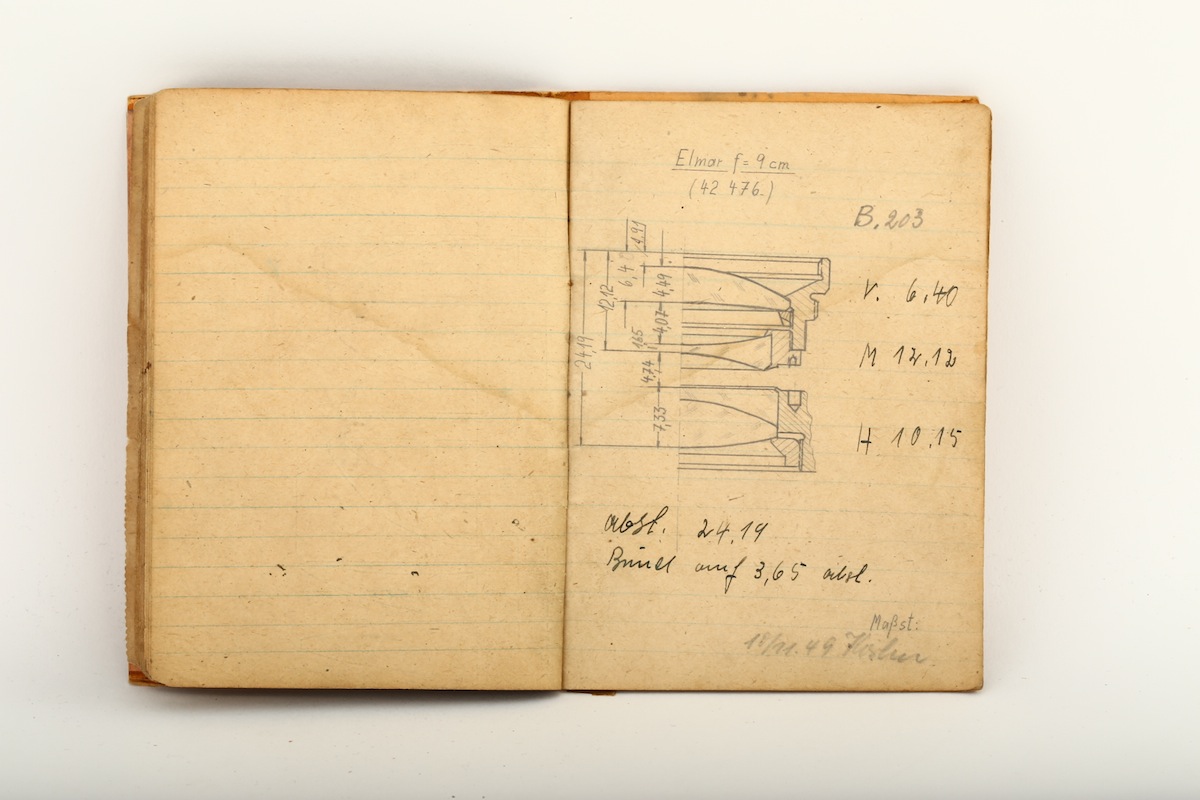 Elmar f = 9 cm
(42 476.)
B. 203
1,91
6,40
4,49
12,12
4,07
1,65
24,19
4,74
7,33
V. 6,40
M 12,12
H 10,15
abst. 24,19
auf 3,65 abst.
Maßst:
49